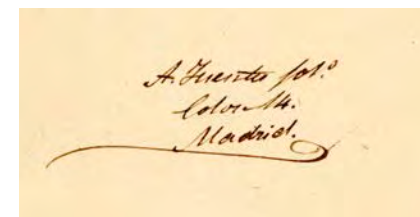 A. Fuente fot.º
Colon 14.
Madrid.